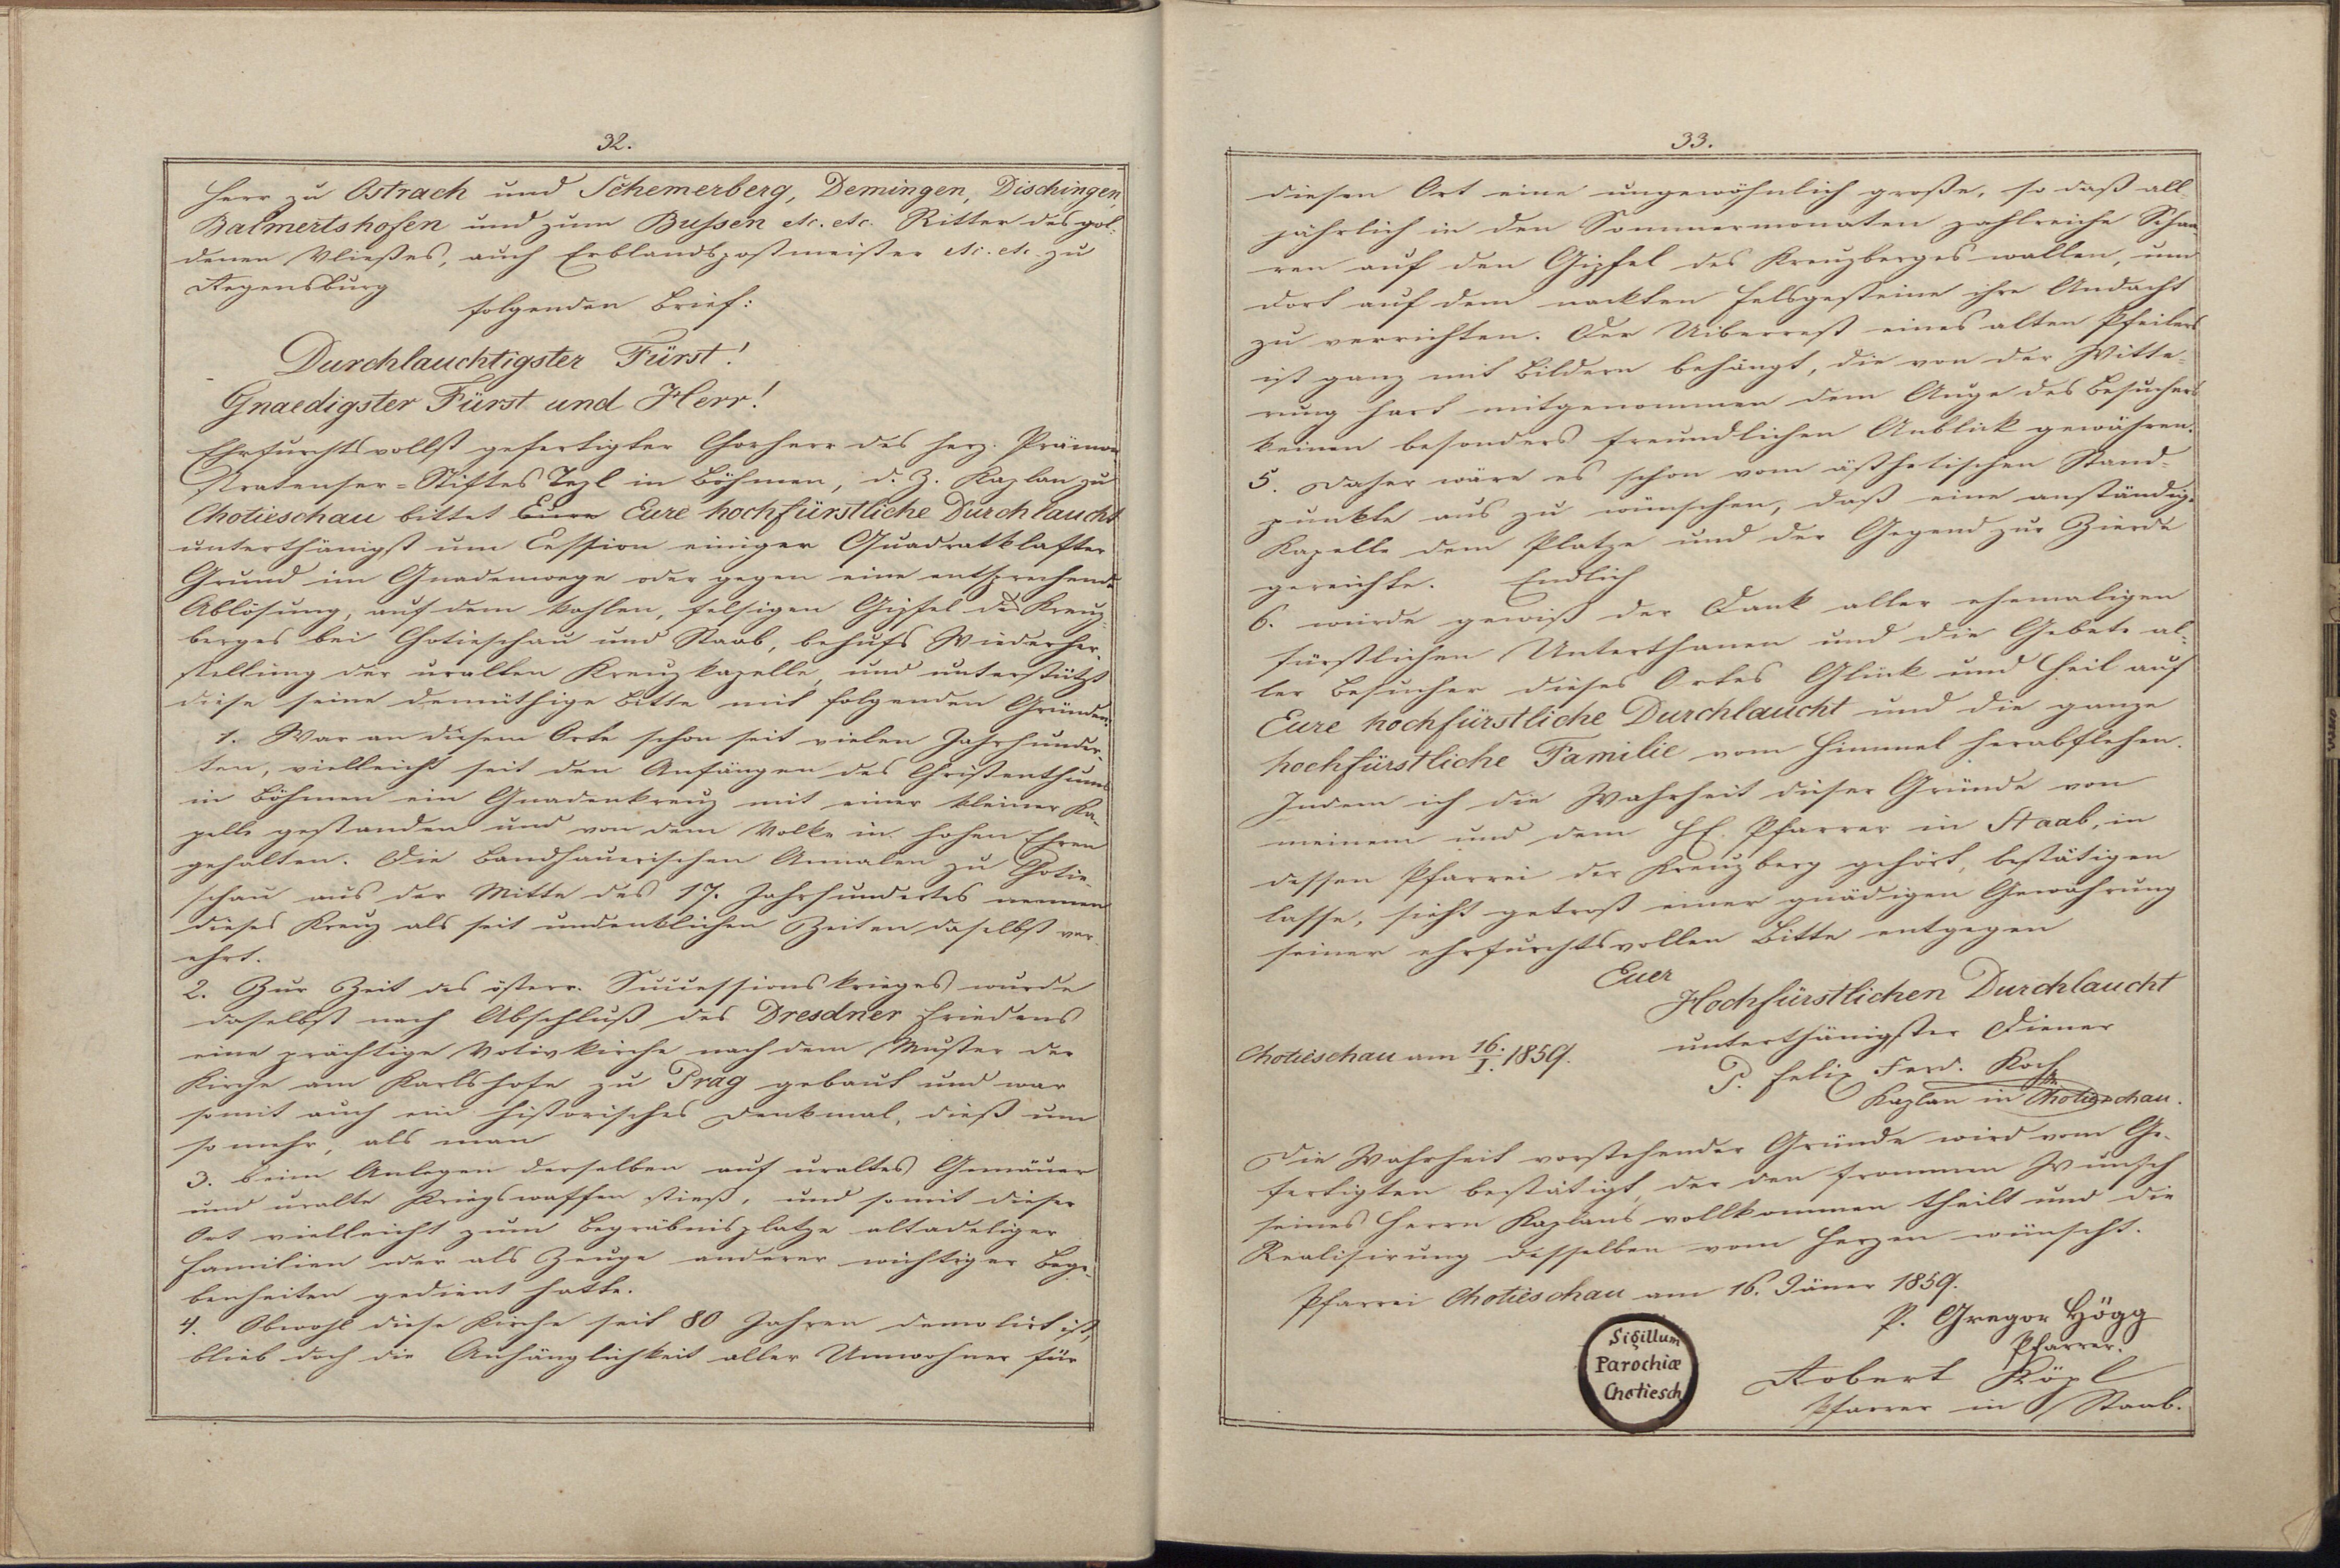 32.
Herr zu Ostrach und Schemerberg, Demingen, Dischingen,
Balmertshofen und zum Bußen etc. etc. Ritter des gol-
denen Vließes, auch Erblandspostmeister etc. etc. zu
Regensburg
folgenden Brief:
Durchlauchtigster Fürst!
Gnaedigster Fürst und Herr!
Ehrfurchtsvollst gefertigter Chorherr des herz. Prämon
stratenser-Stiftes Tepl in Böhmen, d. Z. Kaplan zu
Chotieschau bittet Eure Eure hochfürstliche Durchlaucht
unterthänigst um Cession einiger Quadratklafter
Grund im Gnadenwege oder gegen eine entsprechende
Ablösung, auf dem kahlen, felsigen Gipfel des Kreuz-
berges bei Chotieschau und Staab, behufs Wiederher-
stellung der uralten Kreuzkapelle, und unterstützt
diese seine demüthige Bitte mit folgenden Gründen:
1. War an diesem Orte schon seit vielen Jahrhunder-
ten, vielleicht seit den Anfängen des Christenthums
in Böhmen ein Gnadenkreuz mit einer kleiner Ka-
pelle gestanden und von dem Volke in hohen Ehren
gehalten. Die Bandhauerischen Annalen zu Chotie-
schau aus der Mitte des 17. Jahrhundertes nennen
dieses Kreuz als seit undenklichen Zeiten daselbst ver-
ehrt.
2. Zur Zeit des österr. Successionskrieges wurde
daselbst nach Abschluß des Dresdner Friedens
eine prächtige Votivkirche nach dem Muster der
Kirche am Karlshofe zu Prag gebaut und war
somit auch ein historisches Denkmal, dieß um
so mehr, als man
3. beim Anlegen derselben auf uraltes Gemäuer
und uralte Kriegswaffen stieß, und somit dieser
Ort vielleicht zum Begräbnisplatze altadeliger
Familien oder als Zeuge anderer wichtiger Bege-
benheiten gedient hatte.
4. Obwohl diese Kirche seit 80 Jahren demolirt ist,
blieb doch die Anhänglichkeit aller Umwohner für
33.
diesen Ort eine ungewöhnlich große, so daß all-
jährlich in den Sommermonaten zahlreiche Schaa
ren auf den Gipfel des Kreuzberges wallen, um
dort auf dem nackten Felsgesteine ihre Andacht
zu verrichten. Der Uiberrest eines alten Pfeilers
ist ganz mit Bildern behängt, die von der Witte-
rung hart mitgenommen dem Auge des Besuchers
keinen besonders freundlichen Anblick gewähren.
5. Daher wäre es schon vom ästhetischen Stand-
punkte aus zu wünschen, daß eine anständige
Kapelle dem Platze und der Gegend zur Zierde
gereichte. Endlich
6. würde gewiß der Dank aller ehemaligen
fürstlichen Unterthanen und die Gebete al-
ler Besucher dieses Ortes Glück und Heil auf
Eure hochfürstliche Durchlaucht und die ganze
hochfürstliche Familie vom Himmel herabflehen.
Indem ich die Wahrheit dieser Gründe von
meinem und dem H. Pfarrer in Staab, in
dessen Pfarrei der Kreuzberg gehört, bestätigen
lasse, sieht getrost einer gnädigen Gewährung
seiner ehrfurchtsvollen Bitte entgegen
Euer
Hochfürstlichen Durchlaucht
unterthänigster Diener
Chotieschau am 16./I. 1859.
P. Felix Ferd. Koch
Kaplan in Chotieschau.
Die Wahrheit vorstehender Gründe wird vom Ge-
fertigten bestätigt, der den frommen Wunsch
seines Herrn Kaplans vollkommen theilt und die
Realisirung desselben vom Herzen wünscht.
Pfarrei Chotieschau am 16. Jäner 1859.
P. Gregor Högg
Pfarrer.
Sigillum
Parochiæ
Chotiesch
Robert Köpl
Pfarrer in Staab.